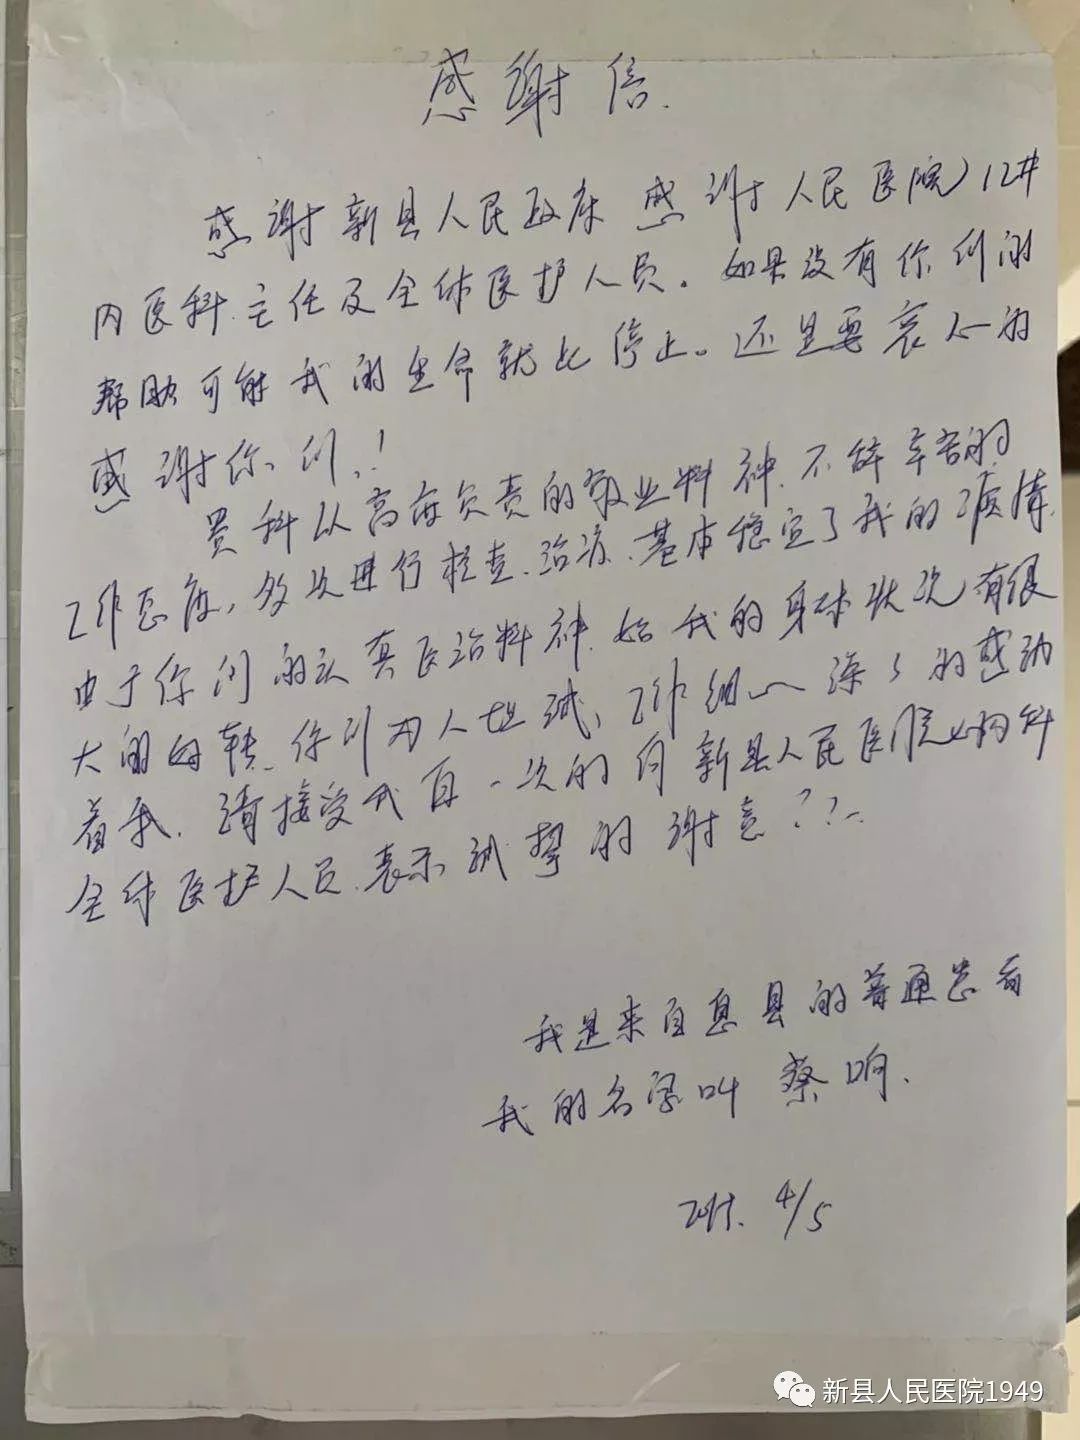 感谢信.
感谢新县人民政府 感谢人民医院
内医科.主任及全体医护人员。如果没有你们的
帮助可能我的生命就此停止。还是要衷心的
感谢你们!
贵科以高度负责的敬业精神.不辞辛苦的
工作态度,多次进行检查.治疗.基本稳定了我的病情.
由于你们的认真医治精神.给我的身体状况有很
大的好转.你们为人坦诚、工作细心深深的感动
着我.请接受我再一次的向新县人民医院心内科
全体医护人员.表示诚挚的谢意??
我是来自息县的普通患者
我的名字叫 蔡响.
4/5
新县人民医院1949